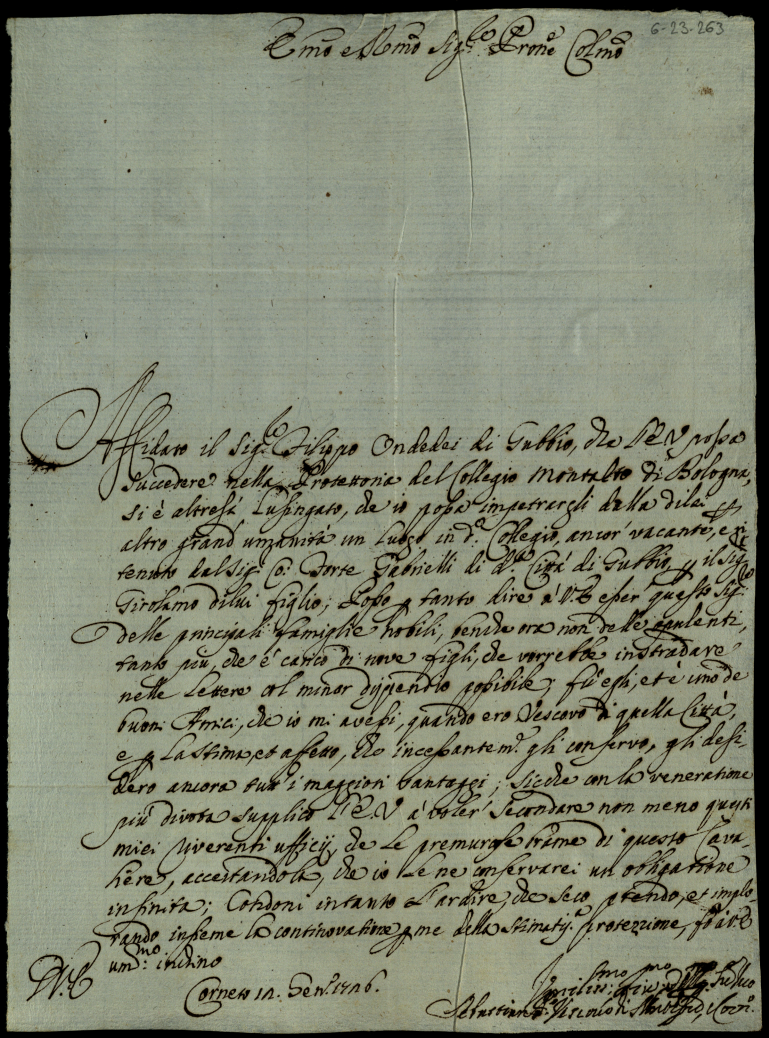 6-23-263
Emo e Rmo Sig.r Prone Colmo
Affidato il Sig.r Filippo Ondedei di Gubbio, che l'E.V. possa
succedere nella Protettoria del Collegio Montalto di Bologna,
si è altresì lusingato, che io possa impetrargli dalla di lei
altro grand' umanità un luogo in d.o Collegio, ancor' vacante, e ri
tenuto dal Sig. Co: Forte Gabrielli di d.a Città di Gubbio p il Sig.r
Girolamo di lui figlio; Posso p tanto dire à V.E. esser questo Sig.r
delle principali famiglie nobili, benche ora non delle opulenti,
tanto più, che è carico di nove figli, che vorrebbe instradare
nelle lettere col minor dispendio possibile; fù egli, et è uno de
buoni Amici, che io mi avessi, quando ero Vescovo di quella Città,
e p la stima, et affetto, che incessantem.te gli conservo, gli desi
dero ancora tutt' i maggiori vantaggi; sicche con la veneratione
più divota supplico l'E.V. à voler' secondare non meno questi
miei riverenti ufficij, che le premurose brame di questo Cava
liere, accertandola, che io le ne conservarei un obligatione
infinita; Condoni intanto l'ardire, che seco prendo, et implo
rando insieme la continovatione p me della stimatis.a protezzione, fò à V.E.
um.mo inchino
V.E.
Corneto 12. Gen.o 1726.
Sebastiano